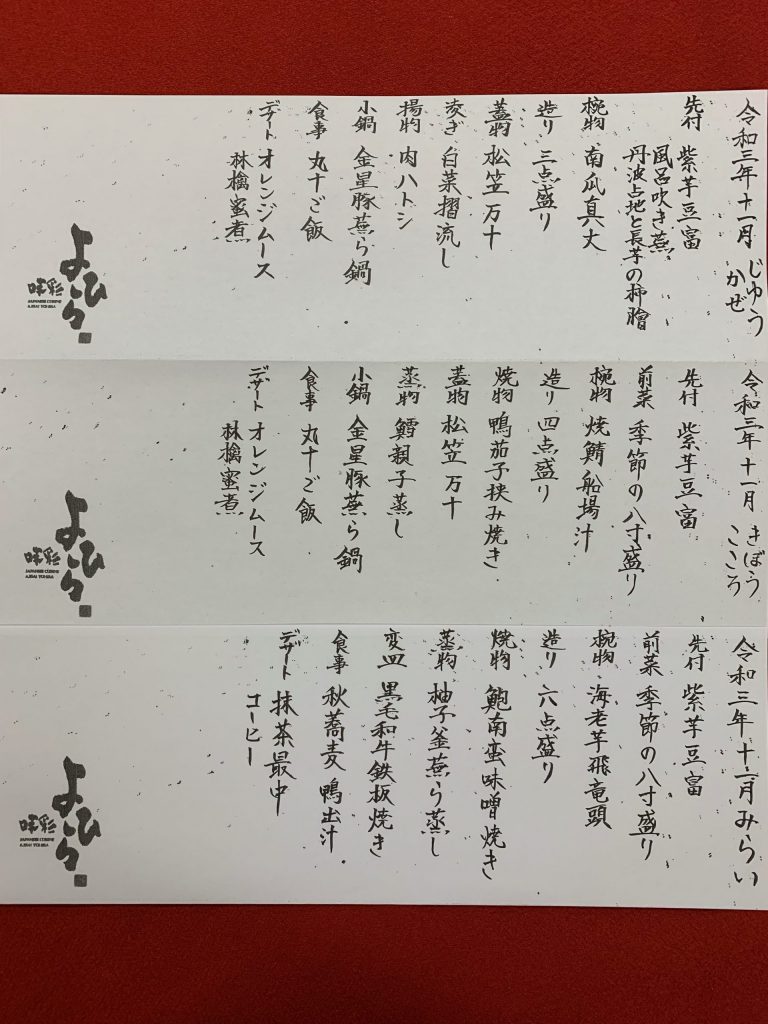 令和三年十一月 じゆう
かぜ
先付 紫芋豆富
風呂吹き蕪
丹波占地と長芋の柿膾
椀物 南瓜真丈
造り 三点盛り
蓋物 松笠万十
凌ぎ 白菜摺流し
揚物 肉ハトシ
小鍋 金星豚蕪ら鍋
食事 丸十ご飯
デザート オレンジムース
林檎蜜煮
よひら
JAPANESE CUISINE
AJISAI YOHIRA
令和三年十一月 きぼう
こころ
先付 紫芋豆富
前菜 季節の八寸盛り
椀物 焼鯖船場汁
造り 四点盛り
焼物 鴨茄子挟み焼き
蓋物 松笠万十
蒸物 鱈親子蒸し
小鍋 金星豚蕪ら鍋
食事 丸十ご飯
デザート オレンジムース
林檎蜜煮
よひら
JAPANESE CUISINE
AJISAI YOHIRA
令和三年十一月 みらい
先付 紫芋豆富
前菜 季節の八寸盛り
椀物 海老芋飛竜頭
造り 六点盛り
焼物 鮑南蛮味噌焼き
蒸物 柚子釜蕪ら蒸し
変皿 黒毛和牛鉄板焼き
食事 秋蕎麦 鴨出汁
デザート 抹茶最中
コーヒー
よひら
JAPANESE CUISINE
AJISAI YOHIRA